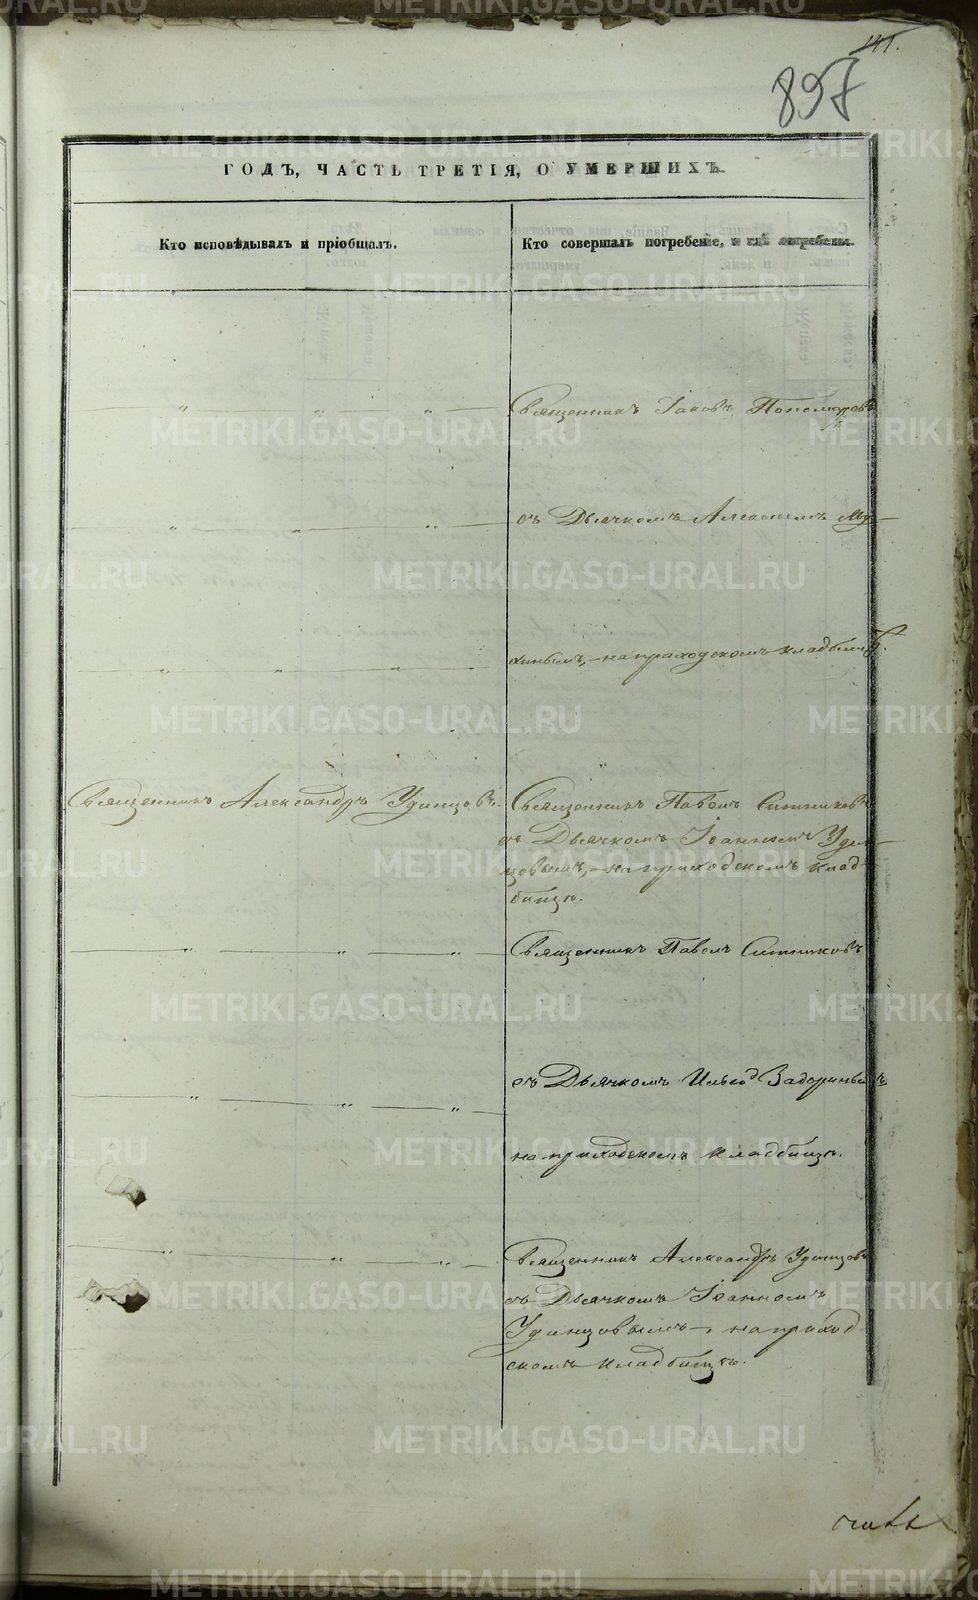 141.
897
ГОДЪ, ЧАСТЬ ТРЕТІЯ, О УМЕРШИХЪ.
Кто исповѣдывалъ и пріобщалъ.
Кто совершалъ погребеніе, и гдѣ погребены.
Священникъ Іаковъ Пономаревъ
съ Дьячкомъ Алексѣемъ Му-
хинымъ, на приходскомъ кладбищѣ.
Священникъ Александръ Удинцовъ.
Священникъ Павелъ Ситниковъ
съ Дьячкомъ Іоанномъ Удин-
цовымъ, на приходскомъ клад-
бищѣ.
Священникъ Павелъ Ситниковъ
съ Дьячкомъ Ильею Задоринымъ
на приходскомъ кладбищѣ.
Священникъ Александръ Удинцовъ
съ Дьячкомъ Іоанномъ
Удинцовымъ, на приход-
скомъ кладбищѣ.
METRIKI.GASO-URAL.RU